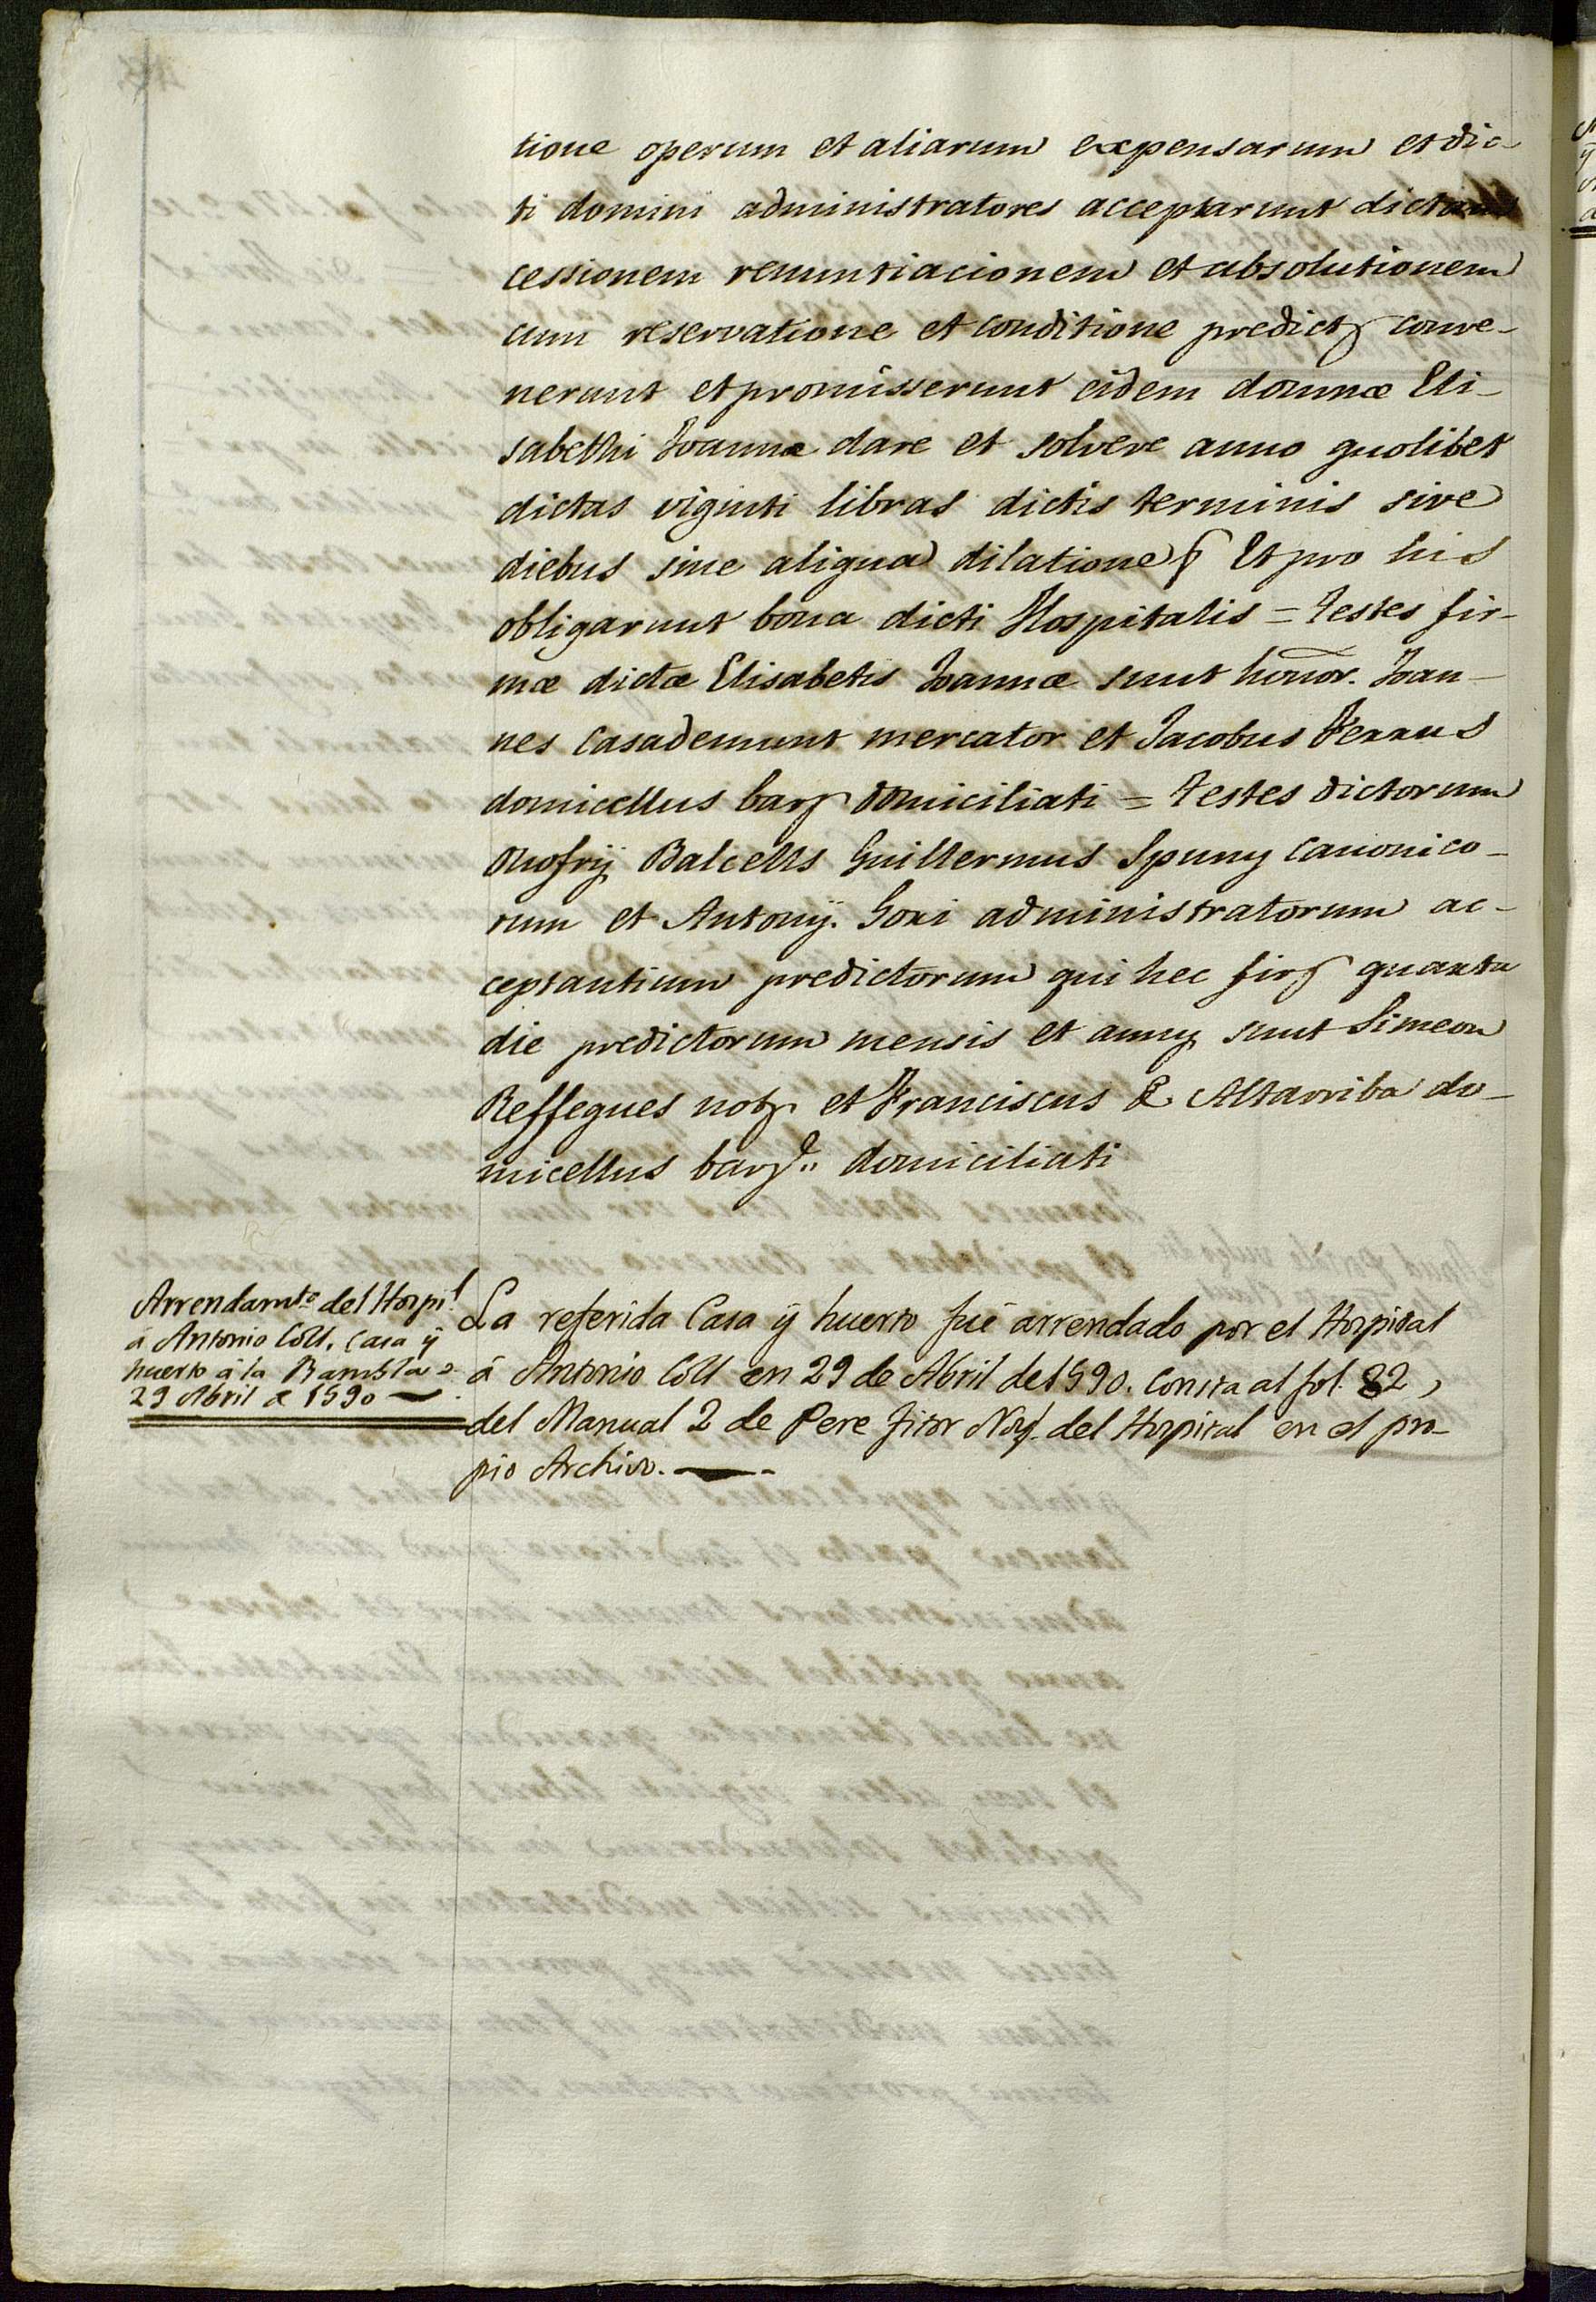 tione operum et aliarum expensarum et dic-
ti domini administratores acceptarunt dictam
cessionem renuntiacionem et absolutionem
cum reservatione et conditione predict conve-
nerunt et promisserunt eidem domnæ Eli-
sabethi Joannæ dare et solvere anno quolibet
dictas viginti libras dictis terminis sive
diebus sine aliqua dilatione Et pro his
obligarunt bona dicti Hospitalis = testes fir-
mæ dictæ Elisabetis Joannæ sunt honor. Joan-
nes Casademunt mercator et Jacobus Ferrus
domicellus bar domiciliati = testes dictorum
Onofrij Balcells Guillermus Spuny canonico-
rum et Antonij. Gori administratorum ac-
ceptantium predictorum qui hec fir quarta
die predictorum mensis et anny sunt Simeon
Reffegues not et Franciscus Altarriba do-
micellus bar domiciliati
Arrendamto del Hospil
á Antonio Coll. Casa ÿ
huerto á la Rambla
29 Abril de 1590
La referida Casa ÿ huerto fué arrendado por el Hospital
á Antonio Coll en 29 de Abril de 1590. Consta al fol. 82
del Manual 2 de Pere Fitor Not. del Hospital en el pro-
pio Archivo.